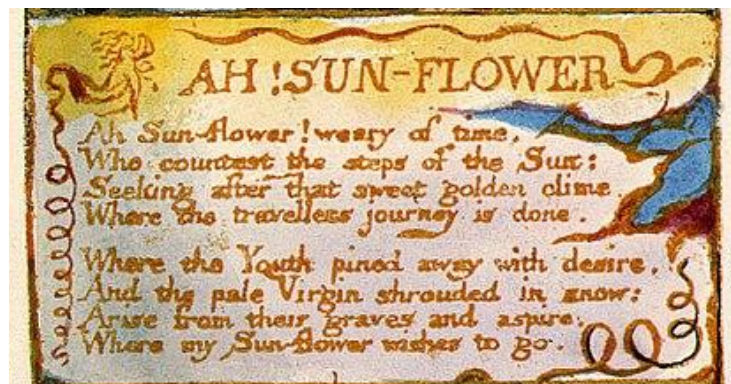 AH! SUN-FLOWER
Ah Sun-flower! weary of time,
Who countest the steps of the Sun:
Seeking after that sweet golden clime
Where the travellers journey is done.
Where the Youth pined away with desire,
And the pale Virgin shrouded in snow:
Arise from their graves and aspire,
Where my Sun-flower wishes to go.